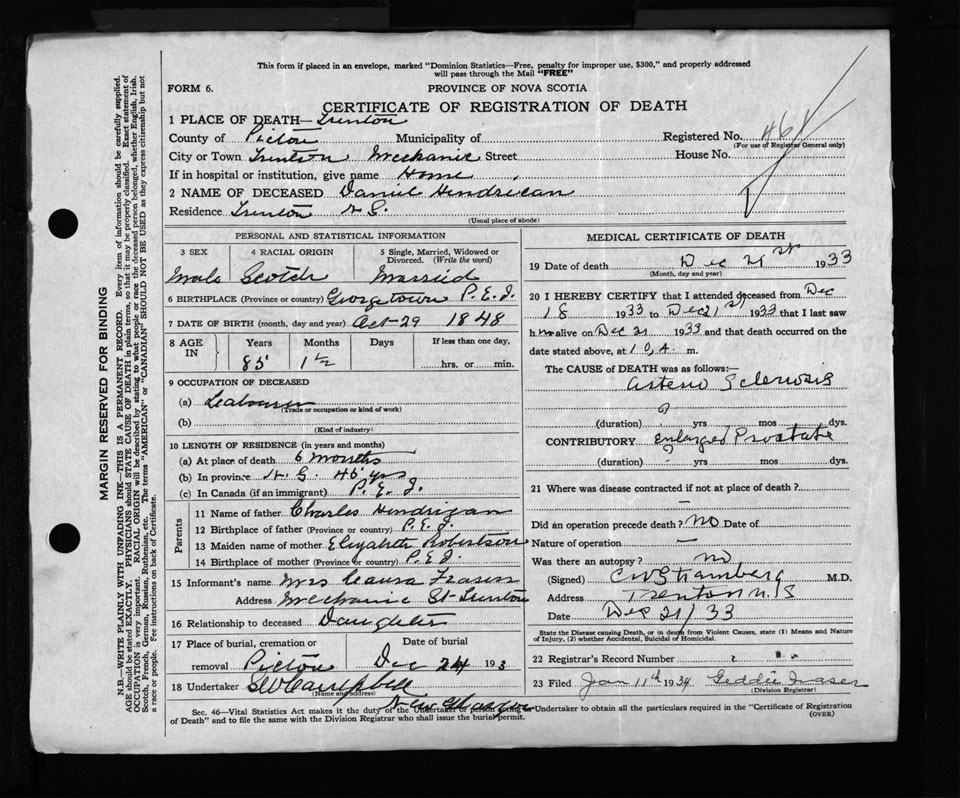 This form if placed in an envelope, marked "Dominion Statistics—Free, penalty for improper use, $300," and properly addressed
will pass through the Mail "FREE"
FORM 6.
PROVINCE OF NOVA SCOTIA
CERTIFICATE OF REGISTRATION OF DEATH
1 PLACE OF DEATH— Trenton
County of Pictou Municipality of
Registered No. 461
(For use of Registrar General only)
City or Town Trenton Mechanic Street House No.
If in hospital or institution, give name Home
2 NAME OF DECEASED Daniel Hendrican
Residence Trenton N S.
(Usual place of abode)
PERSONAL AND STATISTICAL INFORMATION
3 SEX 4 RACIAL ORIGIN 5 Single, Married, Widowed or
Divorced. (Write the word)
Male Scotch Married
6 BIRTHPLACE (Province or country) Georgetown P.E.I.
7 DATE OF BIRTH (month, day and year) Oct 29 1848
8 AGE IN Years Months Days If less than one day,
85 1 1/2 hrs. or min.
9 OCCUPATION OF DECEASED
(a) Labourer
(Trade or occupation or kind of work)
(b)
(Kind of industry)
10 LENGTH OF RESIDENCE (in years and months)
(a) At place of death 6 months
(b) In province N.S. 45 yrs
(c) In Canada (if an immigrant) P.E.I.
Parents
11 Name of father Charles Hendrigan
12 Birthplace of father (Province or country) P.E.I.
13 Maiden name of mother Elizabeth Robertson
14 Birthplace of mother (Province or country) P.E.I.
15 Informant's name Mrs Laura Fraser
Address Mechanic St Trenton
16 Relationship to deceased Daughter
17 Place of burial, cremation or Date of burial
removal Pictou Dec 24 193
18 Undertaker Campbell
(Name and address)
New Glasgow
MEDICAL CERTIFICATE OF DEATH
19 Date of death Dec 21st 1933
(Month, day and year)
20 I HEREBY CERTIFY that I attended deceased from Dec
18 1933 to Dec 21st 1933 that I last saw
him alive on Dec 21 1933 and that death occurred on
date stated above, at 10, A. m.
The CAUSE of DEATH was as follows:—
Arterio Sclerosis
(duration) yrs mos dys.
CONTRIBUTORY Enlarged Prostate
(duration) yrs mos dys.
21 Where was disease contracted if not at place of death?
—
Did an operation precede death? No Date of
Nature of operation —
Was there an autopsy? no
(Signed) C W Stramberg M.D.
Address Trenton N.S
Date Dec 21/33
State the Disease causing Death, or in death from Violent Causes, state (1) Means and Nature
of Injury, (2) whether Accidental, Suicidal or Homicidal.
22 Registrar's Record Number
23 Filed Jan 11th 1934 Geddie Fraser
(Division Registrar)
Sec. 46—Vital Statistics Act makes it the duty of the Undertaker or person acting as Undertaker to obtain all the particulars required in the "Certificate of Registration
of Death" and to file the same with the Division Registrar who shall issue the burial permit.
(OVER)
MARGIN RESERVED FOR BINDING
N.B.—WRITE PLAINLY WITH UNFADING INK—THIS IS A PERMANENT RECORD. Every item of information should be carefully supplied.
AGE should be stated EXACTLY. PHYSICIANS should STATE CAUSE OF DEATH in plain terms, so that it may be properly classified. Exact statement of
OCCUPATION is very important. RACIAL ORIGIN will be described by stating to what people or race the deceased person belonged, whether English, Irish,
Scotch, French, German, Russian, Ruthenian, etc. The terms "AMERICAN" or "CANADIAN" SHOULD NOT BE USED as they express citizenship but not
a race or people. See instructions on back of Certificate.